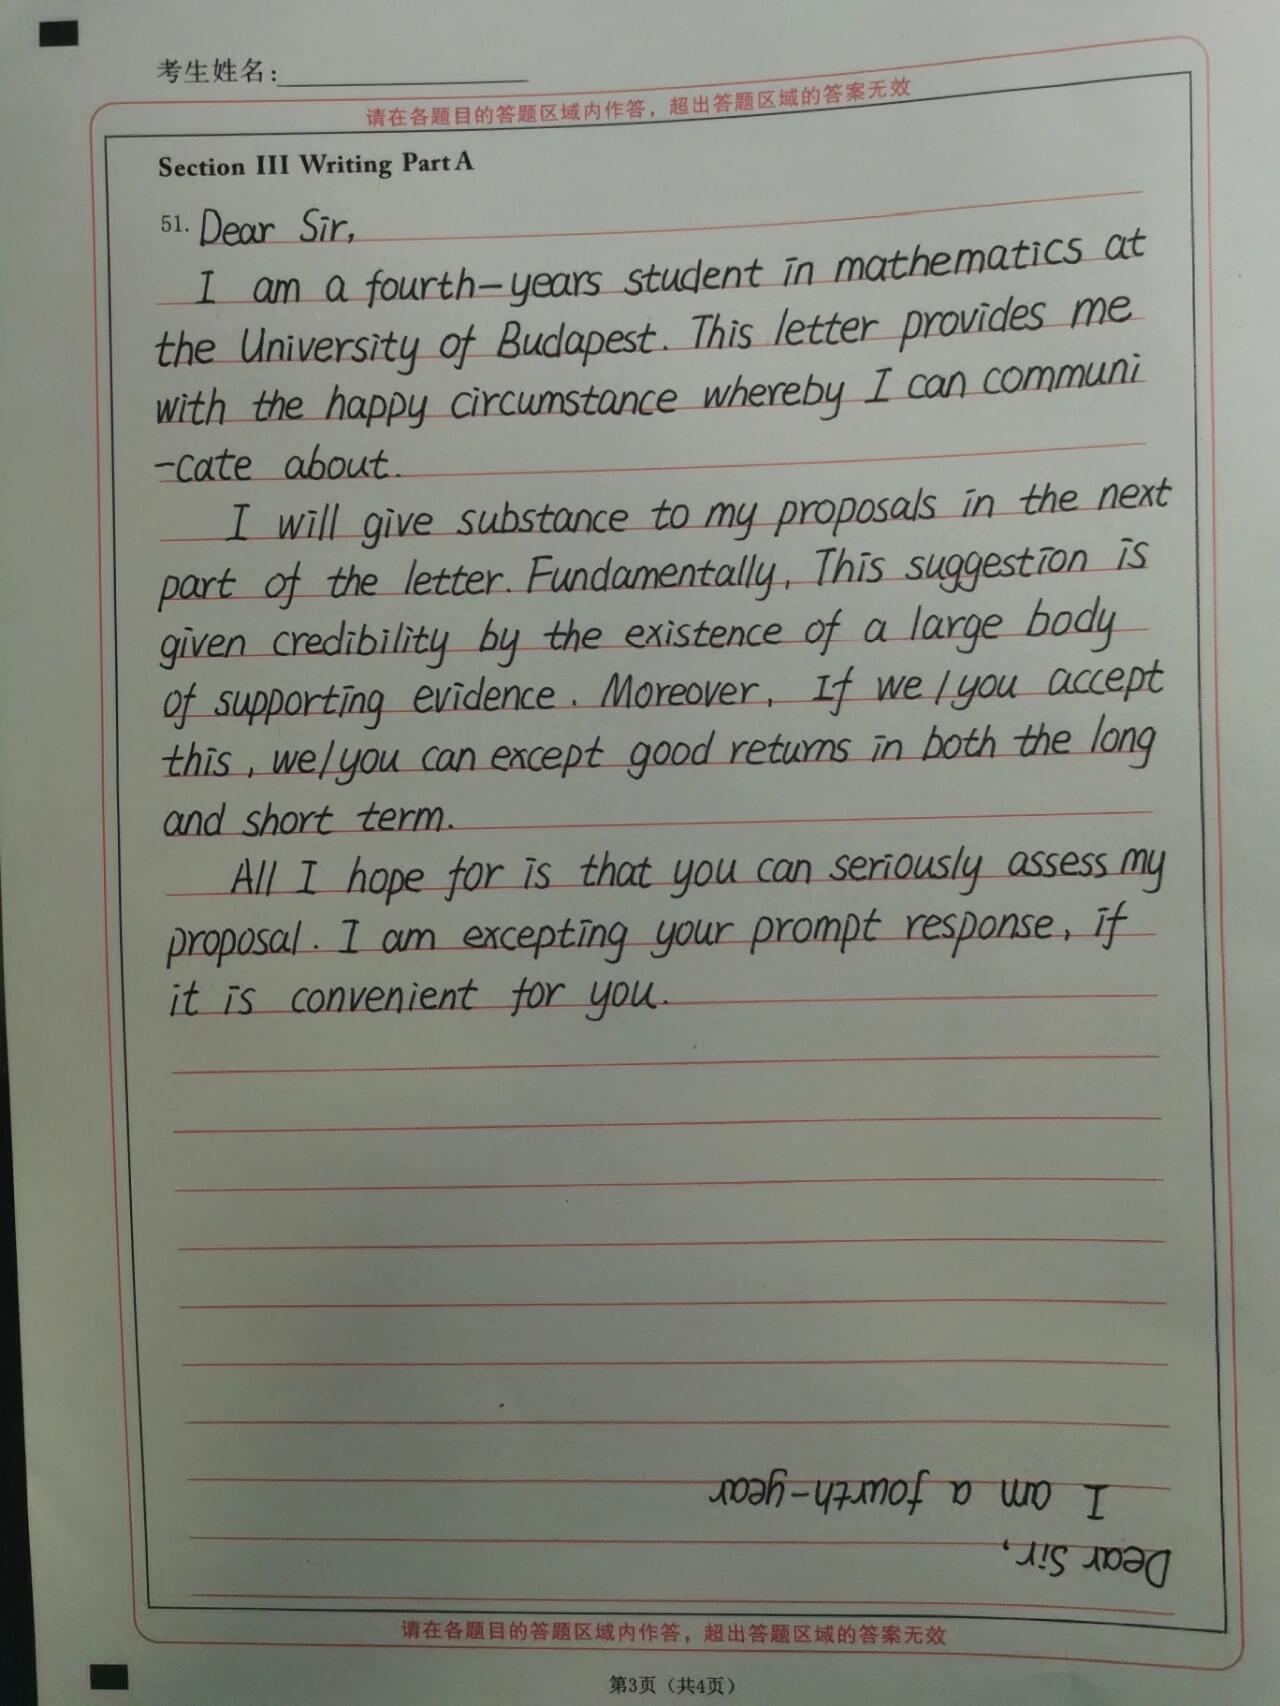 考生姓名:
请在各题目的答题区域内作答，超出答题区域的答案无效
Section III Writing Part A
51. Dear Sir,
I am a fourth-years student in mathematics at
the University of Budapest. This letter provides me
with the happy circumstance whereby I can communi
-cate about.
I will give substance to my proposals in the next
part of the letter. Fundamentally, This suggestion is
given credibility by the existence of a large body
of supporting evidence. Moreover, If we/you accept
this, we/you can except good returns in both the long
and short term.
All I hope for is that you can seriously assess my
proposal. I am excepting your prompt response, if
it is convenient for you.
Dear Sir,
I am a fourth-year
请在各题目的答题区域内作答，超出答题区域的答案无效
第3页（共4页）